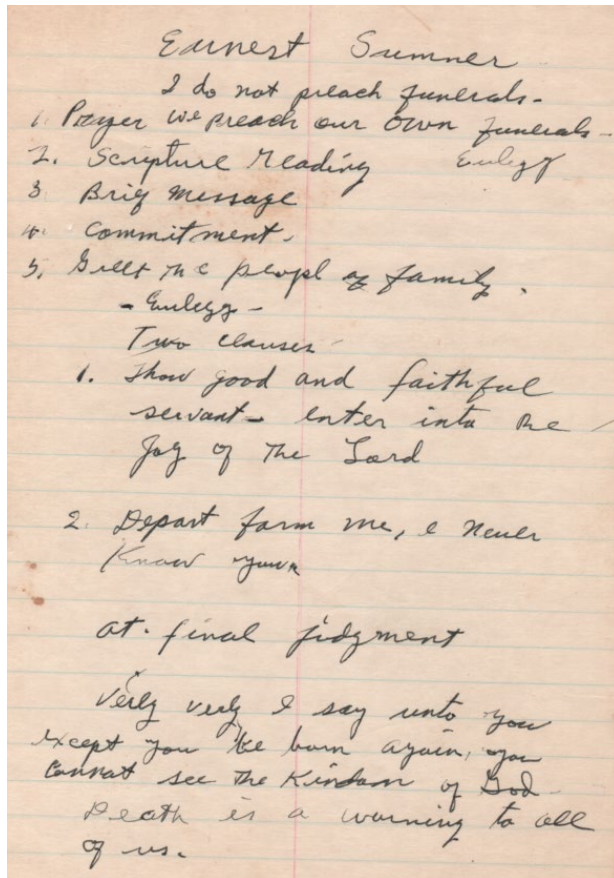 Earnest Sumner
I do not preach funerals -
1. Prayer we preach our own funerals -
2. Scripture reading Eulegy
3. Brief Message
4. Commitment.
5. Greet the peopl of family.
- Eulegy -
Two clauses
1. Thow good and faithful
servant - enter into the
Joy of the Lord
2. Depart farm me, I never
Know you
at. final jidgment
Verly verly I say unto you
except you be born again, you
Connat see the Kindom of God
Death is a warning to all
of us.